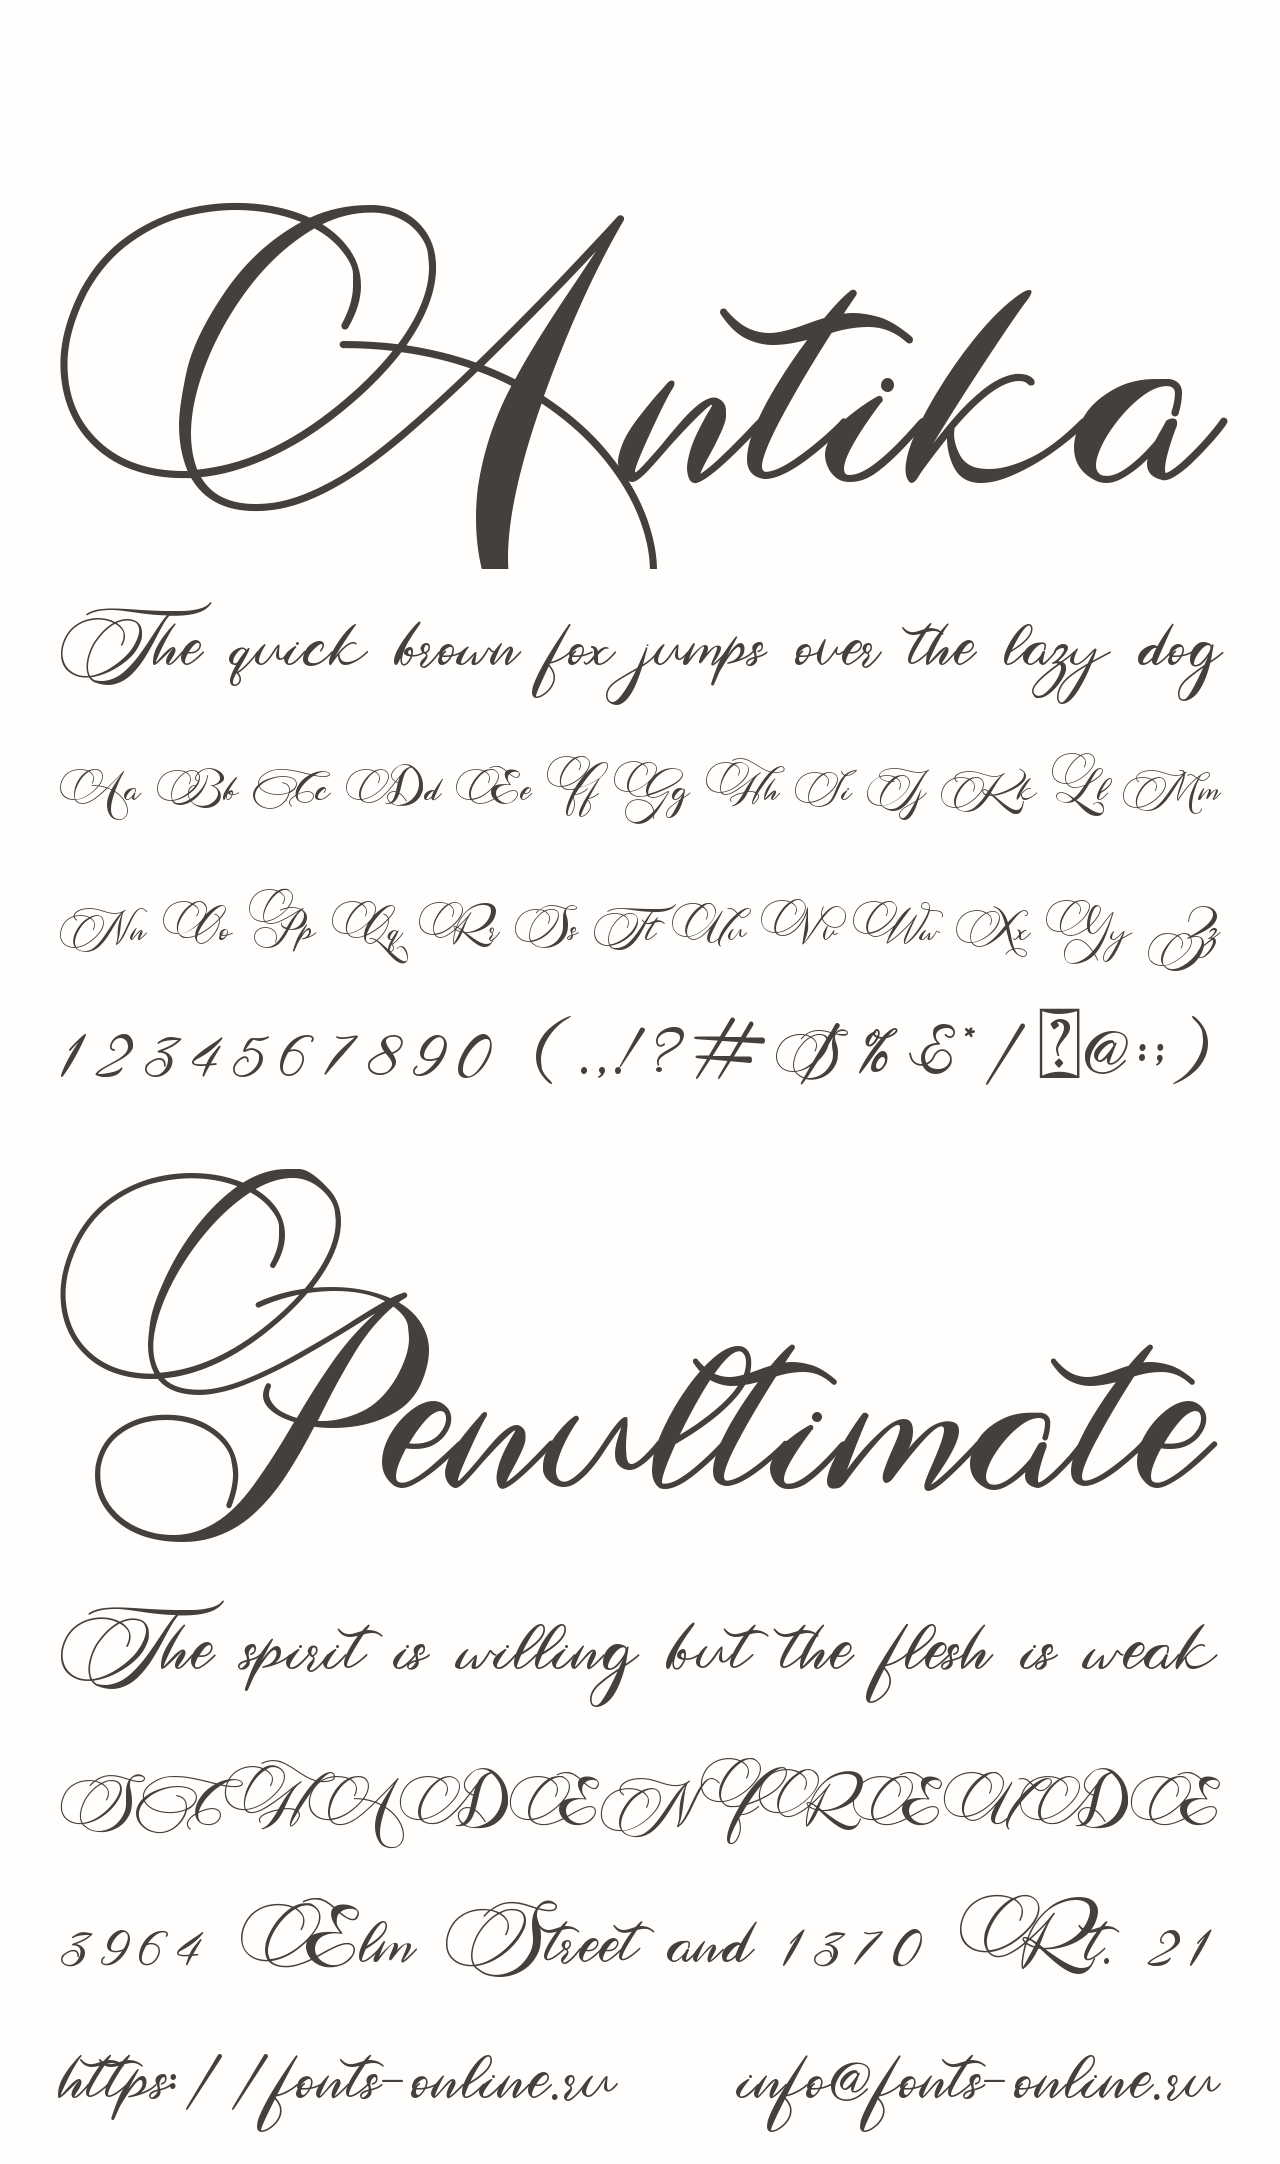 Antika
The quick brown fox jumps over the lazy dog
Aa Bb Cc Dd Ee Ff Gg Hh Ii Jj Kk Ll Mm
Nn Oo Pp Qq Rr Ss Tt Uu Vv Ww Xx Yy Zz
1234567890 (.,!?#$%&*/@:;)
Penultimate
The spirit is willing but the flesh is weak
SCHADENFREUDE
3964 Elm Street and 1370 Rt. 21
https://fonts-online.ru info@fonts-online.ru